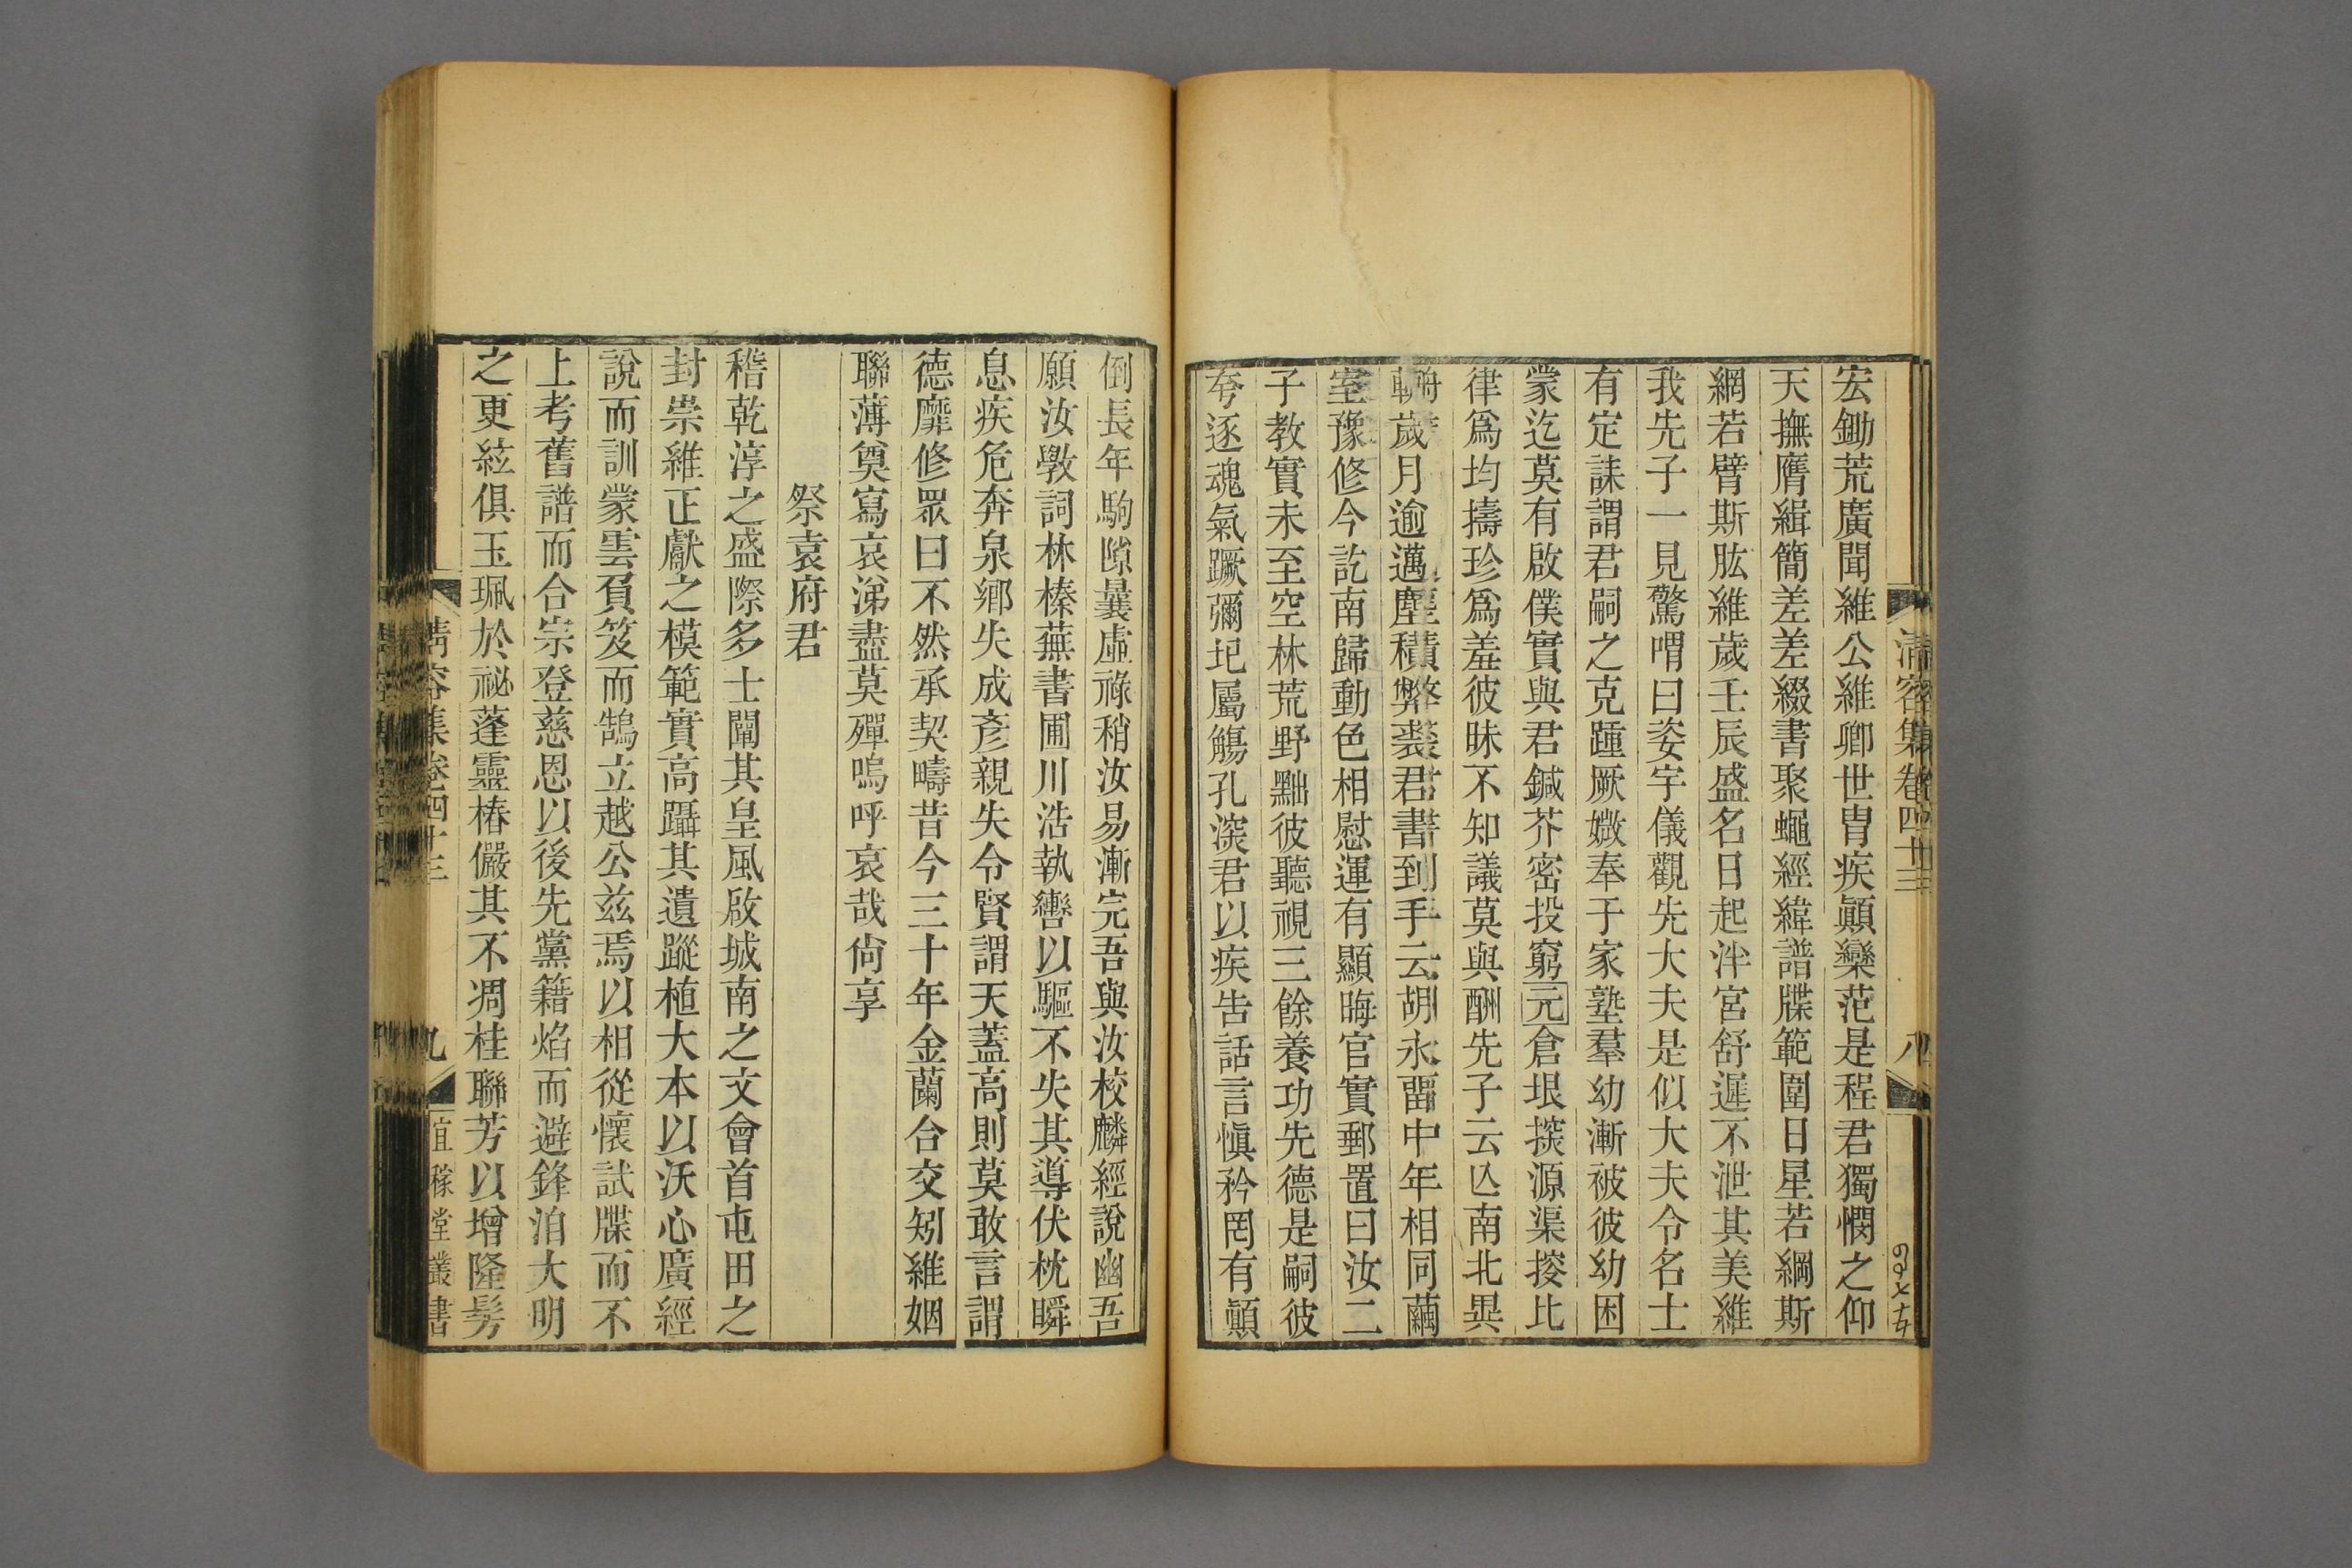 清容集卷四十三　八
宏鋤荒廣聞維公維卿世胄疾顚欒范是程君獨憫之仰
天撫膺緝簡差差綴書聚蠅經緯譜牒範圍日星若綱斯
網若臂斯肱維歲壬辰盛名日起泮宮舒遲不泄其美維
我先子一見驚喟曰姿宇儀觀先大夫是似大夫令名士
有定誄謂君嗣之克踵厥媺奉于家塾羣幼漸被彼幼困
蒙迄莫有啟僕實與君鍼芥密投窮元倉垠揬源渠撥比
律爲均擣珍爲羞彼昧不知議莫與酬先子云亾南北異
輈歲月逾邁塵積弊裘君書到手云胡永畱中年相同繭
室豫修今訖南歸動色相慰運有顯晦官實郵置曰汝二
子教實未至空林荒野黜彼聽視三餘養功先德是嗣彼
夸逐魂氣蹶彌圯屬觴孔深君以疾告話言愼矜罔有顚
倒長年駒隙曩虛祿稍汝易漸完吾與汝校麟經說幽吾
願汝斅詞林榛蕪書圃川浩執轡以驅不失其導伏枕瞬
息疾危奔泉鄉失成彥親失令賢謂天蓋高則莫敢言謂
德靡修眾曰不然承契疇昔今三十年金蘭合交矧維姻
聯薄奠寫哀涕盡莫殫嗚呼哀哉尙享
祭袁府君
稽乾淳之盛際多士闡其皇風啟城南之文會首屯田之
封崇維正獻之模範實高躡其遺蹤植大本以沃心廣經
說而訓蒙雲負笈而鵠立越公茲焉以相從懷試牒而不
上考舊譜而合宗登慈恩以後先黨籍焰而避鋒洎大明
之更絃俱玉珮於祕蓬靈椿儼其不凋桂聯芳以增隆髣
清容集卷四十三　九　宜稼堂叢書